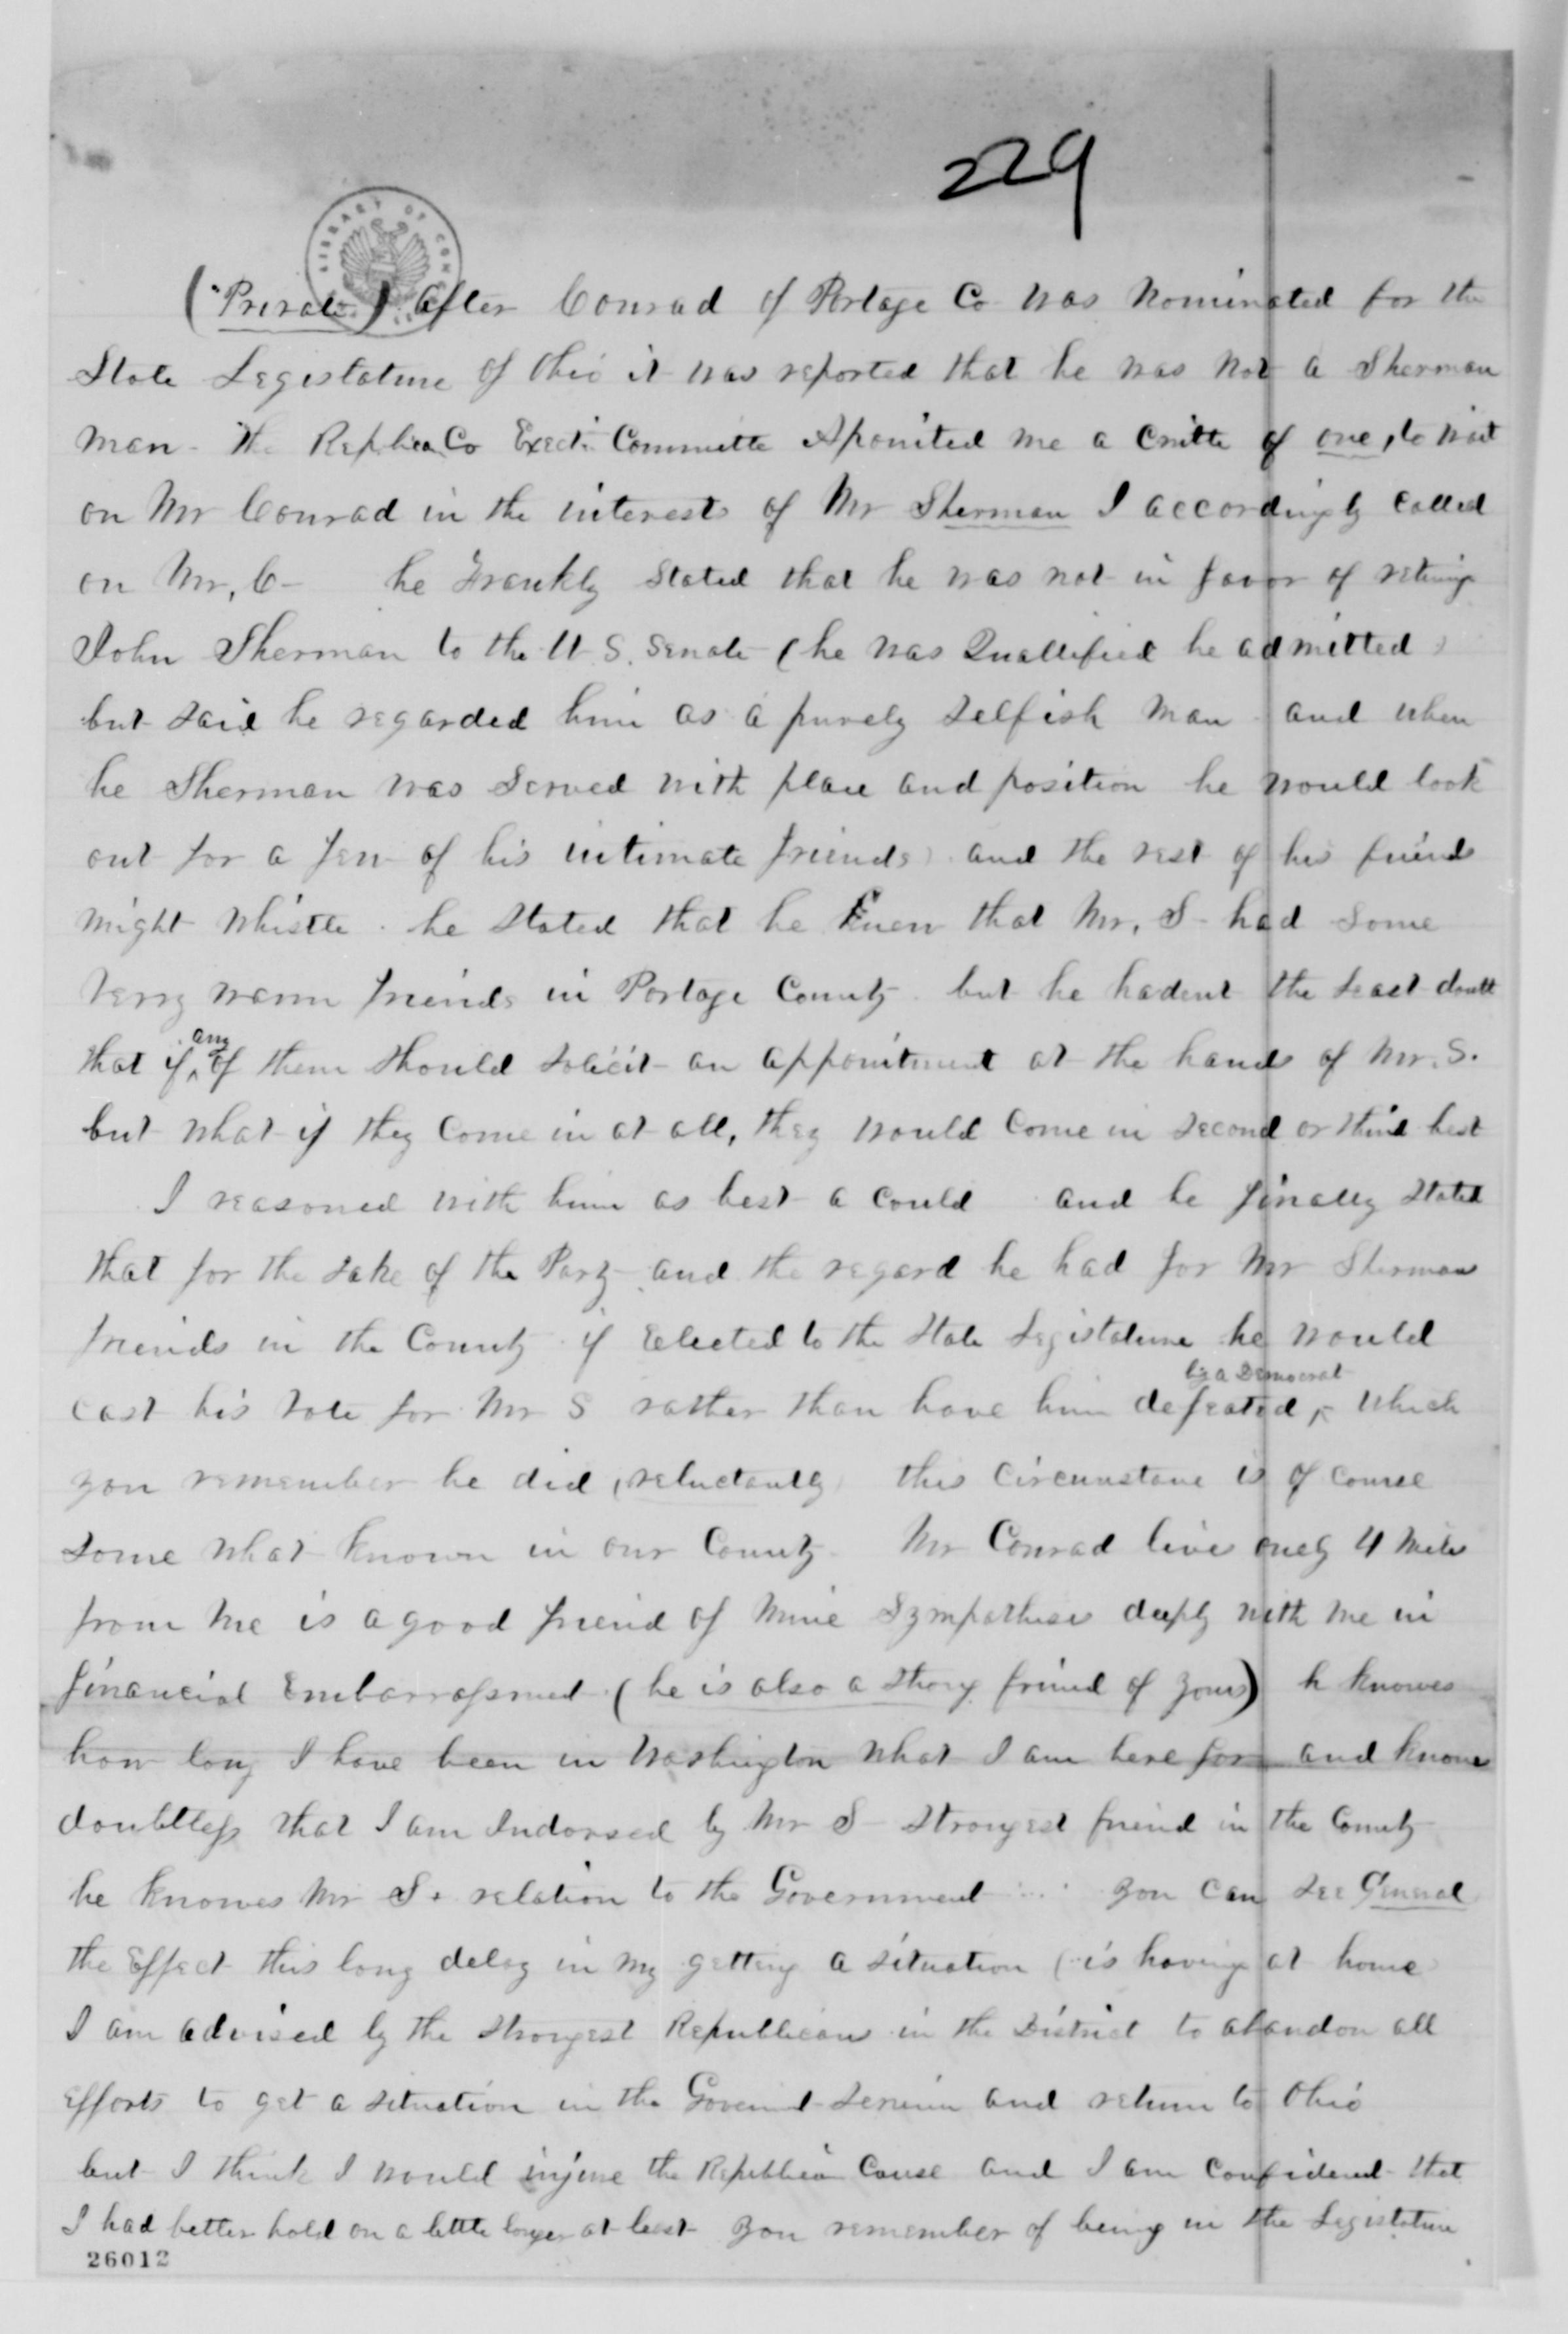 229
LIBRARY OF CON
("Private") After Conrad of Portage Co was Nominated for the
State Legistature of Ohio it was reported that he was not a Sherman
man - the Co Committe Aponited me a Cmitte of one, to wait
on Mr Conrad in the interests of Mr Sherman I accordingly called
on Mr, C- he Frankly Stated that he was not in favor of
John Sherman to the U.S. Senate (he was Quallified he admitted)
but said he regarded him as a purely selfish man and when
he Sherman was Served with place and position he would look
out for a few of his intimate friends and the rest of his friends
might whistle. he stated that he Knew that Mr, S- had some
very warm friends in Portage County but he hadent the least doubt
that if any of them should solicit an appointment at the hands of Mr. S.
but what if they come in at all, they would come in second or third best
I reasoned with him as best a could and he finally stated
that for the sake of the Party and the regard he had for Mr Sherman
friends in the County if Elected to the State Legistature he would
cast his vote for Mr S rather than have him defeated, by a Democrat which
you remember he did, reluctantly this circumstance is of course
some what known in our County Mr Conrad lives only 4 miles
from me is a good friend of mine Sympathises deeply with me in
financial (he is also a strong friend of yours) h knowes
how long I have been in Washington what I am here for and knows
doubtless that I am Indorsed by Mr S- strongest friend in the County
he knowes Mr S. relation to the Government you can see General
the Effect this long delay in my getting a situation (is having at home
I am advised by the strongest Republicans in the District to abandon all
efforts to get a situation in the and return to Ohio
but I think I would injure the Cause and I am confident that
I had better hold on a little longer at least you remember of being in the Legistature
26012